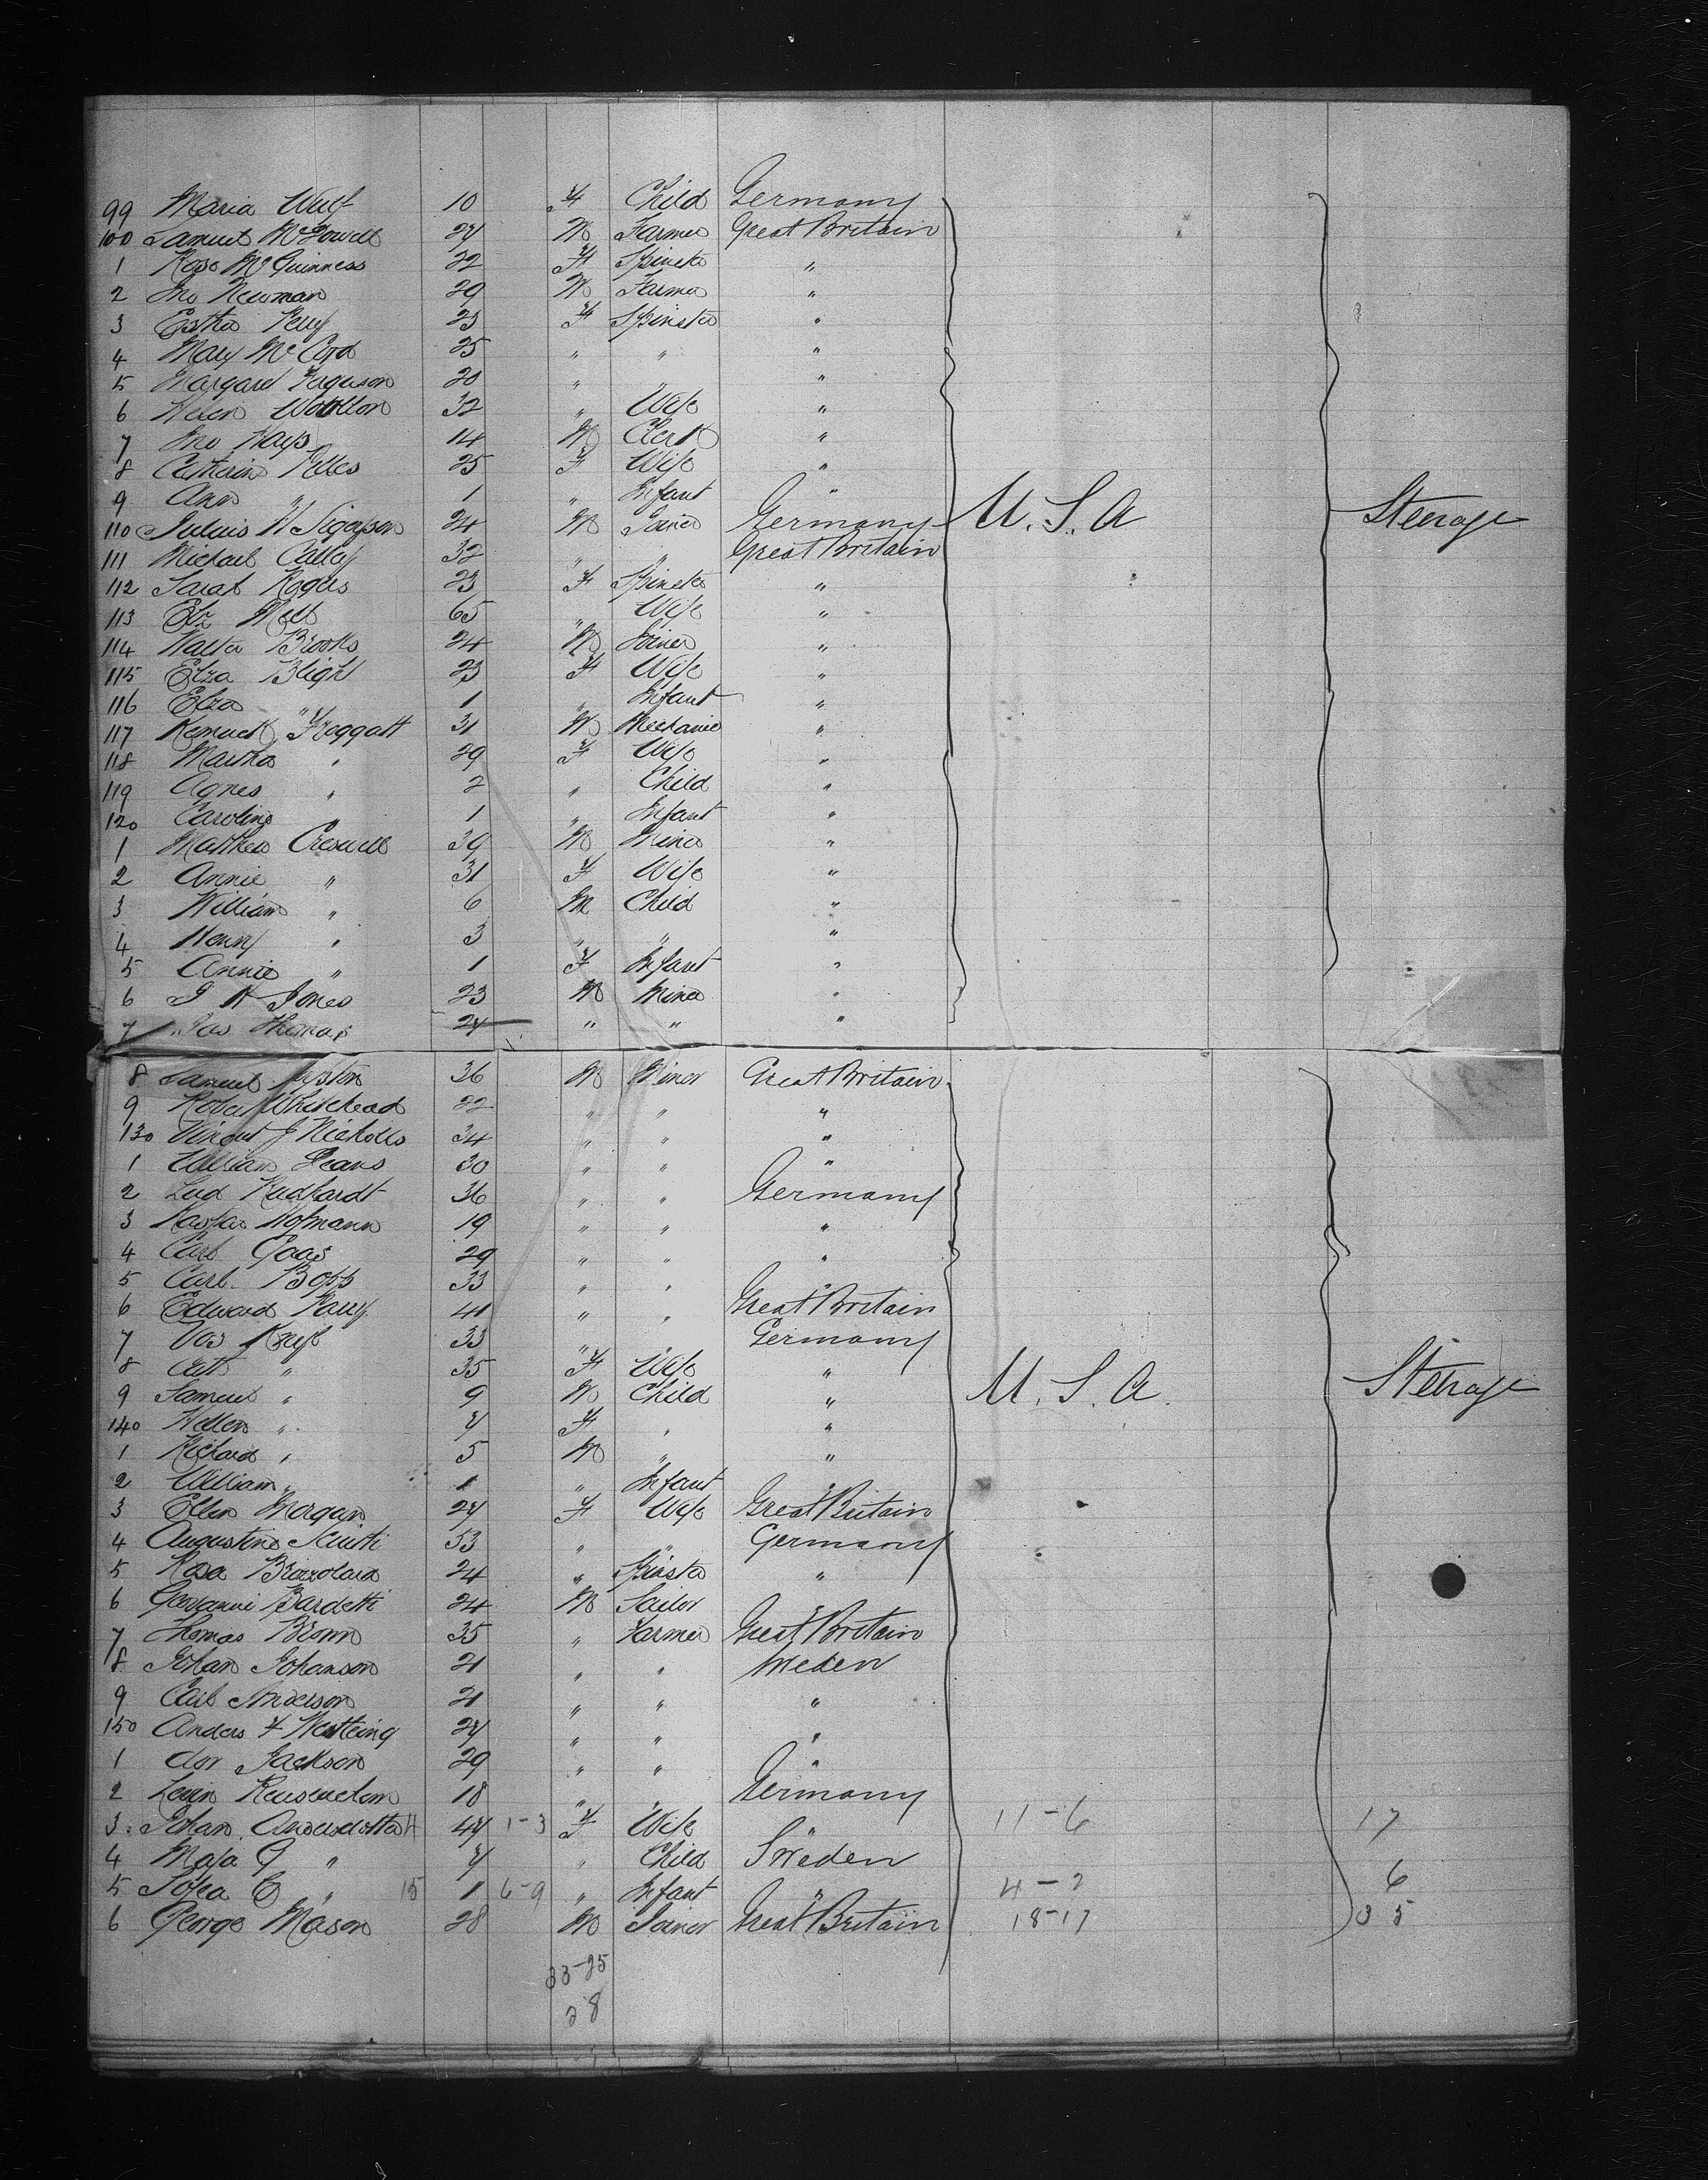 99 Maria Wulf 10 F Child Germany
100 Samuel McDowell 27 M Farmer Great Britain
1 Rose McGuinness 22 F Spinster "
2 Jno Newman 29 M Farmer "
3 Esther Kelly 23 F Spinster "
4 Mary McCord 25 " " "
5 Margaret Ferguson 20 " " "
6 Helen Woollon 32 " Wife "
7 Jno Hays 14 M Clerk "
8 Catherin 25 F Wife "
9 Ann " 1 " Infant "
110 Julius W 24 M Joiner Germany U.S.A Steerage
111 Michael 32 " " Great Britain
112 Sarah Rogers 23 F Spinster "
113 Elz 65 " Wife "
114 Walter Brooks 24 M Joiner "
115 Elza Bligh 23 F Wife "
116 Elza " 1 " Infant "
117 Froggatt 31 M Mechanic "
118 Martha " 29 F Wife "
119 Agnes " 2 " Child "
120 Caroline " 1 " Infant "
1 Matthew Creswell 39 M Miner "
2 Annie " 31 F Wife "
3 William " 6 M Child "
4 Henry " 3 " " "
5 Annie " 1 F Infant "
6 J H Jones 23 M Miner "
7 Jas Thomas 27 " " "
8 Samuel 36 M Miner Great Britain
9 Robert Whitehead 22 " " "
130 Vincent J Nicholls 34 " " "
1 William Evans 30 " " "
2 Lud Kudhardt 36 " " Germany
3 Kaspar Hofmann 19 " " "
4 Carl Goos 29 " " "
5 Carl Bopp 33 " " "
6 Edward Parry 41 " " Great Britain
7 33 " " Germany
8 Cath " 35 F Wife "
9 Samuel " 9 M Child " U.S.A. Steerage
140 Hellen " 7 F " "
1 Richard " 5 M " "
2 William " 1 " Infant "
3 Ellen Morgan 27 F Wife Great Britain
4 Augustine 53 " " Germany
5 Rosa Brizzolara 24 " Spinster "
6 Giovanni Bardetti 24 M Sailor "
7 Thomas Brown 35 " Farmer Great Britain
8 Johan Johanson 21 " " Sweden
9 Carl Anderson 21 " " "
150 Anders F 27 " " "
1 Jackson 29 " " "
2 Levin 18 " " Germany
3 Johan. Andersdotter H 47 1-3 F Wife " 11-6 17
4 Maja G " 7 " Child Sweden
5 Sofia C " 15 1 6-9 " Infant " 4-2 6
6 George Mason 28 M Joiner Great Britain 18-17 35
33-25
28